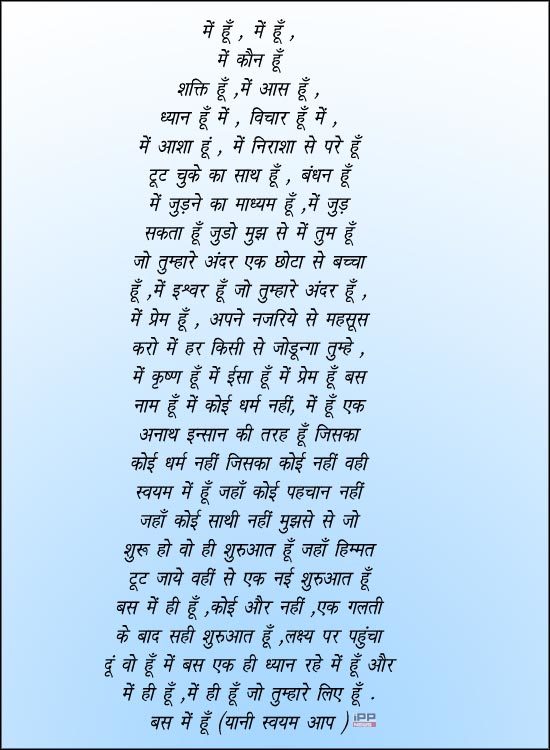 में हूँ , में हूँ ,
में कौन हूँ
शक्ति हूँ ,में आस हूँ ,
ध्यान हूँ में , विचार हूँ में ,
में आशा हूं , में निराशा से परे हूँ
टूट चुके का साथ हूँ , बंधन हूँ
में जुड़ने का माध्यम हूँ ,में जुड़
सकता हूँ जुडो मुझ से में तुम हूँ
जो तुम्हारे अंदर एक छोटा से बच्चा
हूँ ,में इश्वर हूँ जो तुम्हारे अंदर हूँ ,
में प्रेम हूँ , अपने नजरिये से महसूस
करो में हर किसी से जोडून्गा तुम्हे ,
में कृष्ण हूँ में ईसा हूँ में प्रेम हूँ बस
नाम हूँ में कोई धर्म नहीं, में हूँ एक
अनाथ इन्सान की तरह हूँ जिसका
कोई धर्म नहीं जिसका कोई नहीं वही
स्वयम में हूँ जहाँ कोई पहचान नहीं
जहाँ कोई साथी नहीं मुझसे से जो
शुरू हो वो ही शुरुआत हूँ जहाँ हिम्मत
टूट जाये वहीं से एक नई शुरुआत हूँ
बस में ही हूँ ,कोई और नहीं ,एक गलती
के बाद सही शुरुआत हूँ ,लक्ष्य पर पहुंचा
दूं वो हूँ में बस एक ही ध्यान रहे में हूँ और
में ही हूँ ,में ही हूँ जो तुम्हारे लिए हूँ .
बस में हूँ (यानी स्वयम आप ) iPP